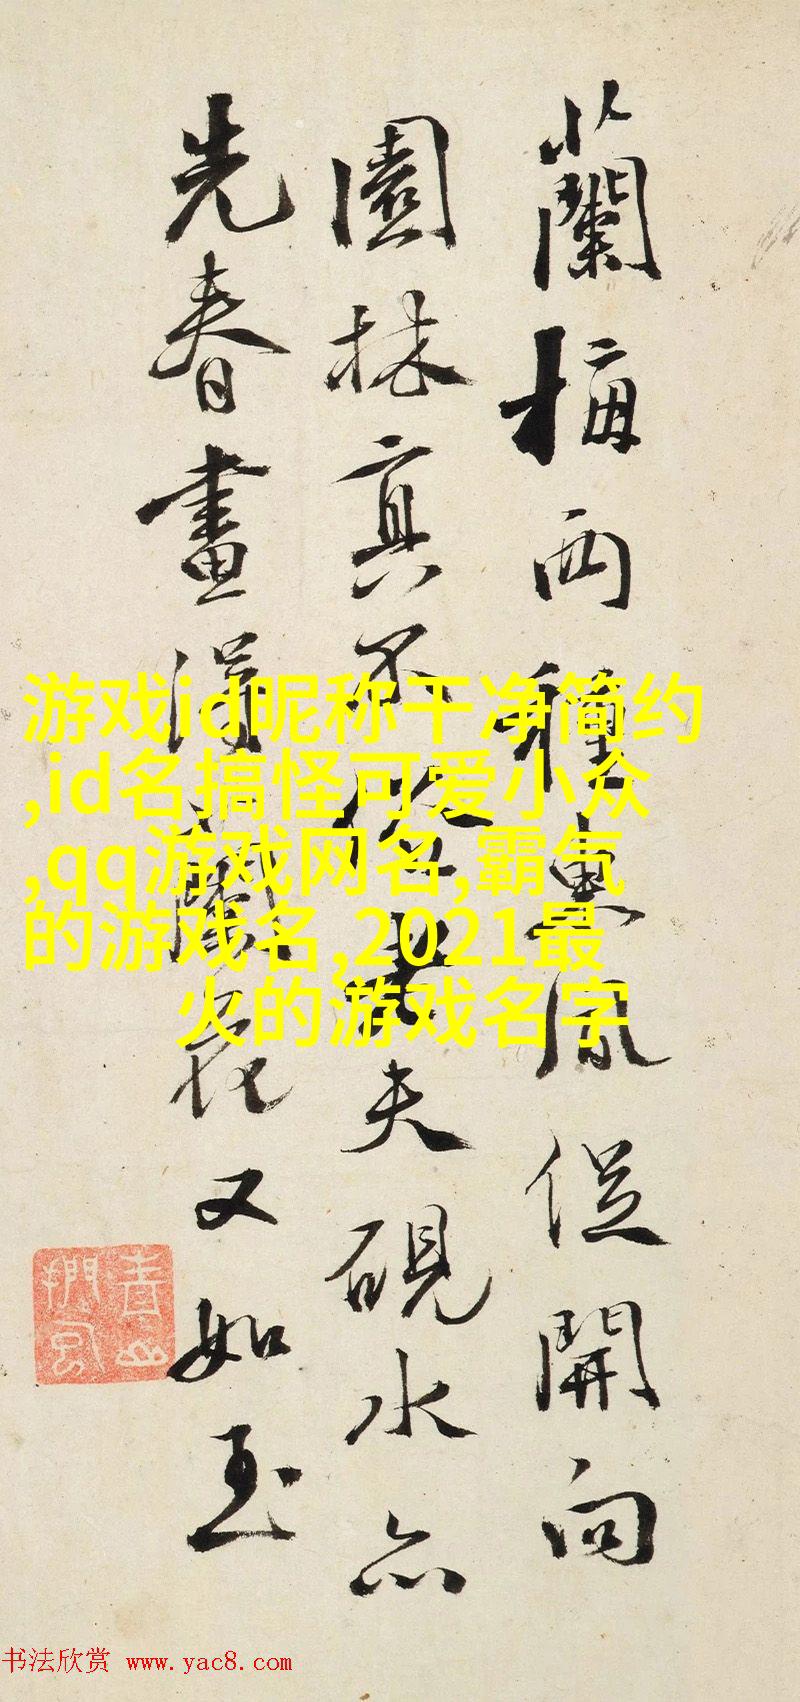 蘭梅两種惠風促開向
園林真不俗夫硯水亦
先春畫得蘭花又如玉
游戏id昵称干净简约
,id名搞怪可爱小众
,qq游戏网名,霸气
的游戏名,2021最
火的游戏名字
书法欣赏 www.yac8.com